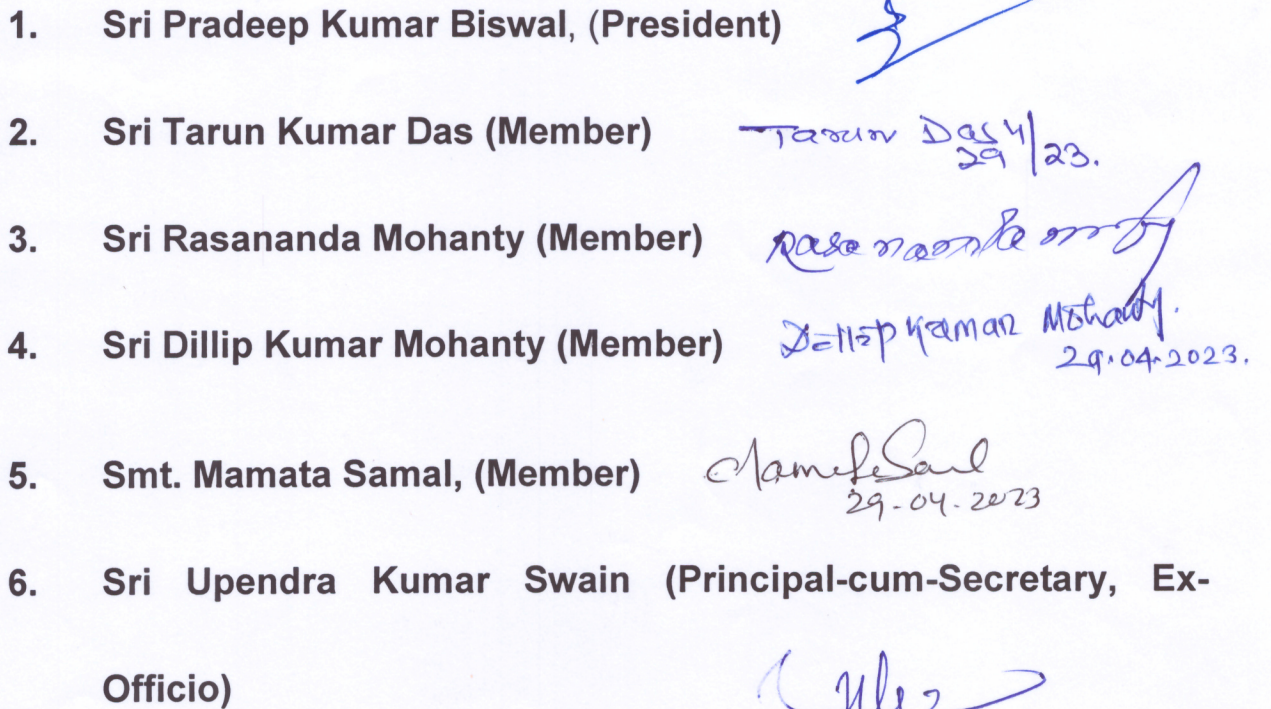 1. Sri Pradeep Kumar Biswal, (President)
2. Sri Tarun Kumar Das (Member) Tarun Das 29/4/23.
3. Sri Rasananda Mohanty (Member)
4. Sri Dillip Kumar Mohanty (Member) Dillip Kumar Mohanty.
29.04.2023.
5. Smt. Mamata Samal, (Member)
29-04-2023
6. Sri Upendra Kumar Swain (Principal-cum-Secretary, Ex-
Officio)